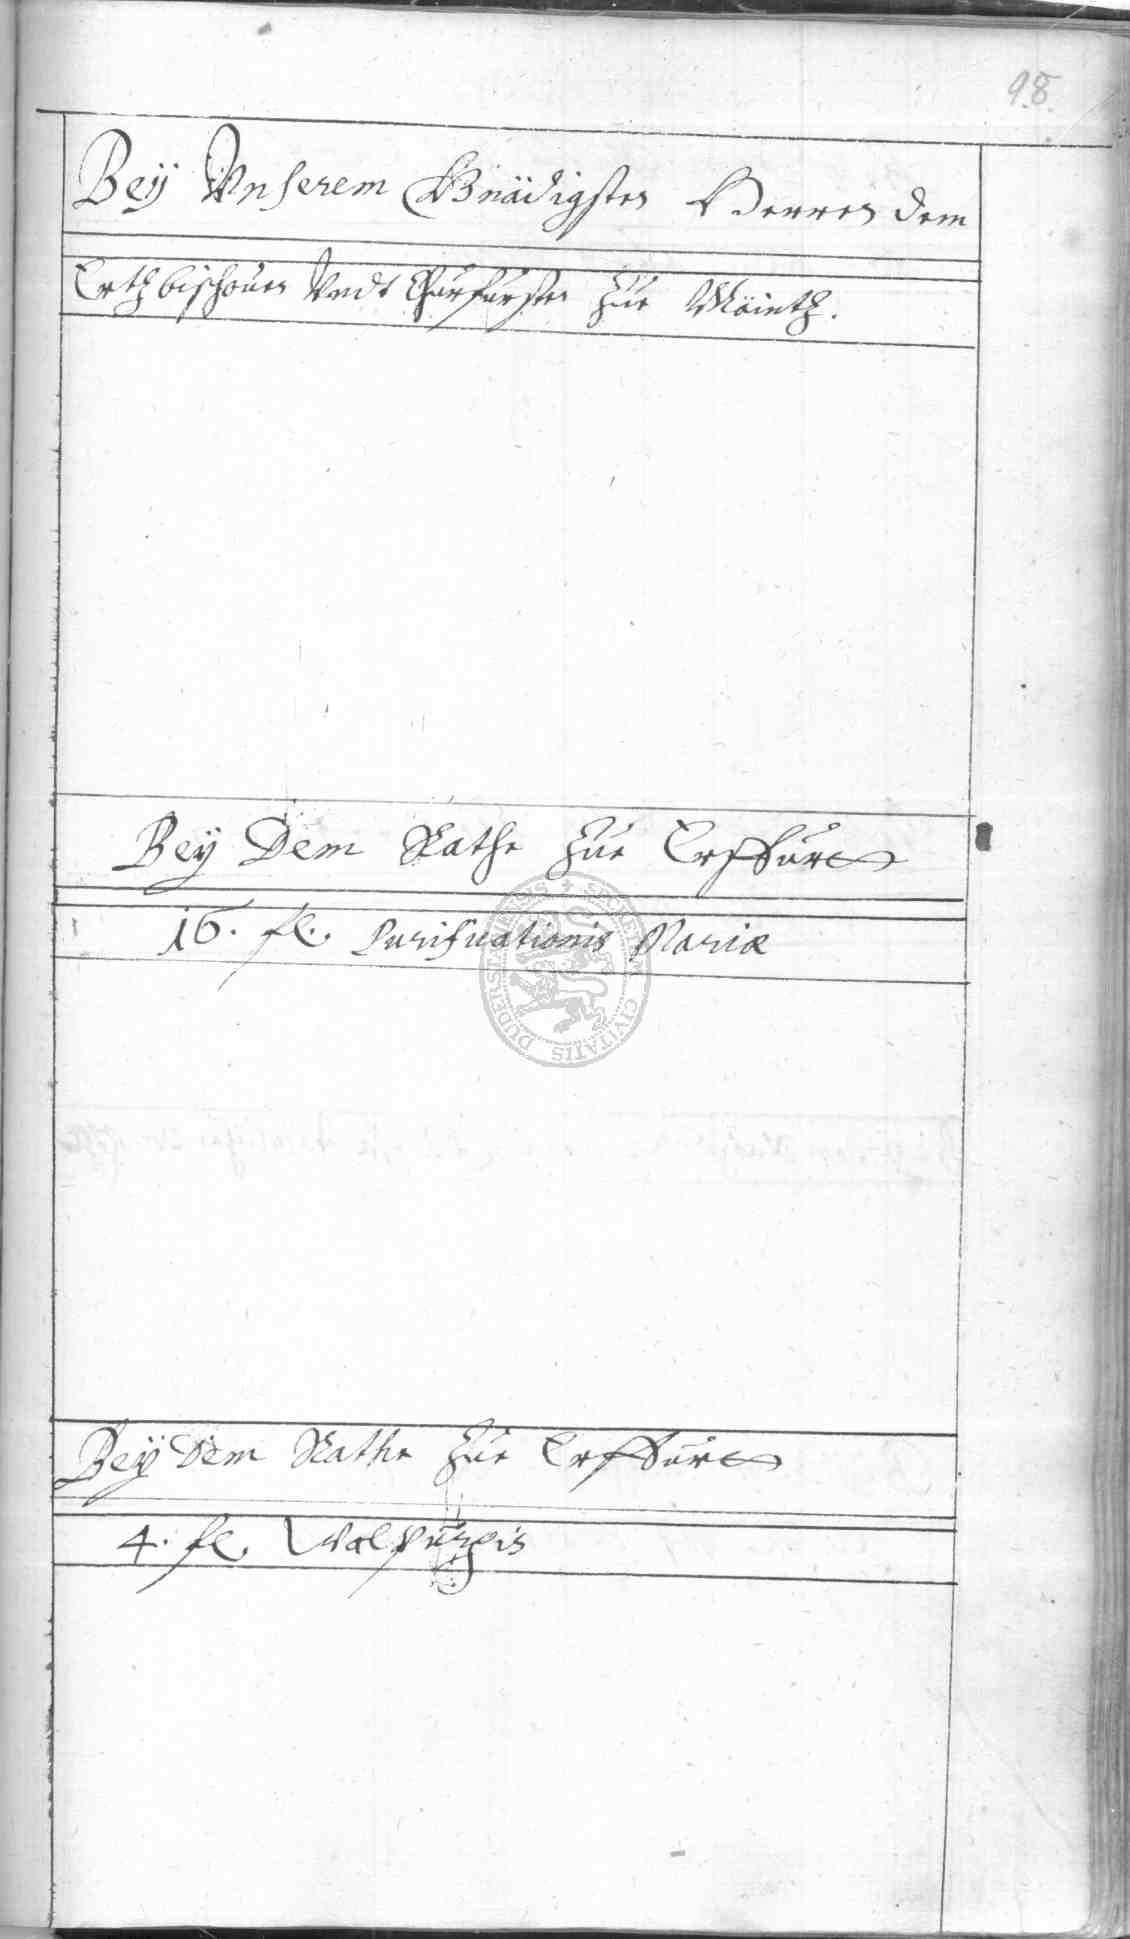 98.
Beÿ Vnserem Gnädigsten Herren dem
Ertzbischouen Vndt Churfürsten Zue Mäintz.
Beÿ Dem Rathe Zue Erffurt
16. fl. Purificationis Mariæ
SECRETUM CIVITATIS DUDERSTADENSIS
Beÿ Dem Rathe Zue Erffurt
4. fl. Walpurgis